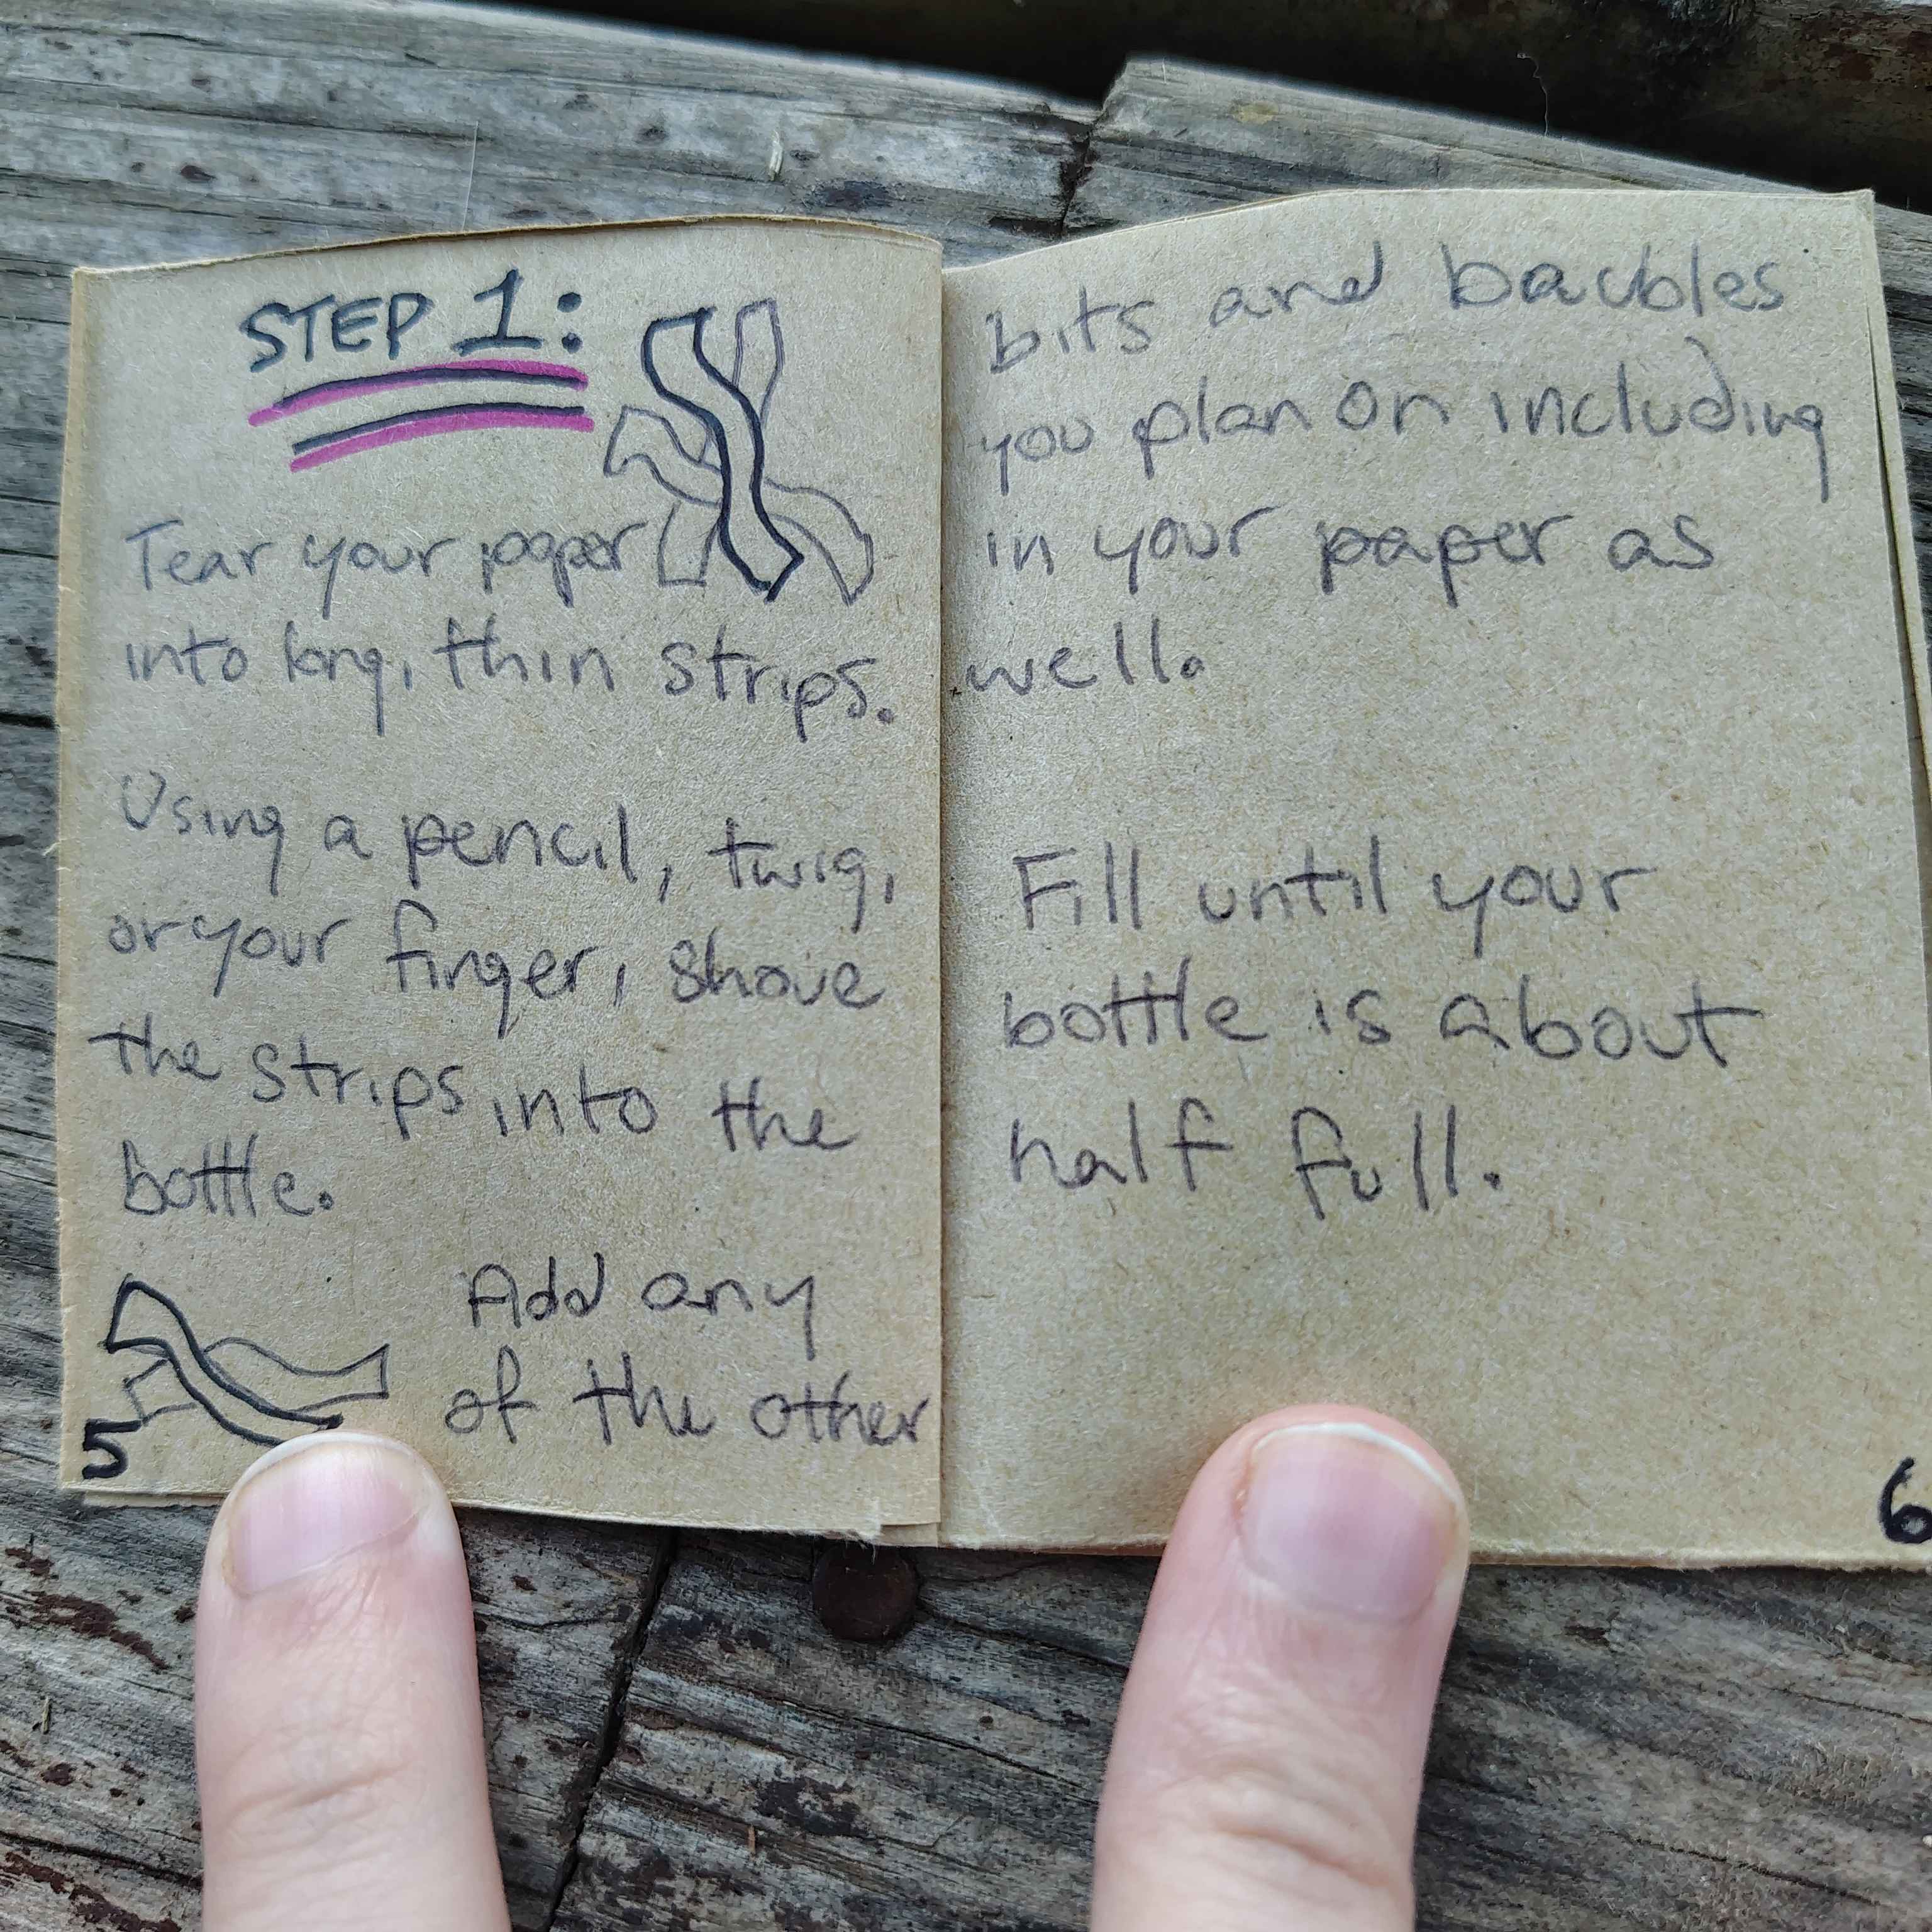 STEP 1:
Tear your paper
into long, thin strips.
Using a pencil, twig,
or your finger, shove
the strips into the
bottle.
Add any
of the other
5
bits and baubles
you plan on including
in your paper as
well.
Fill until your
bottle is about
half full.
6